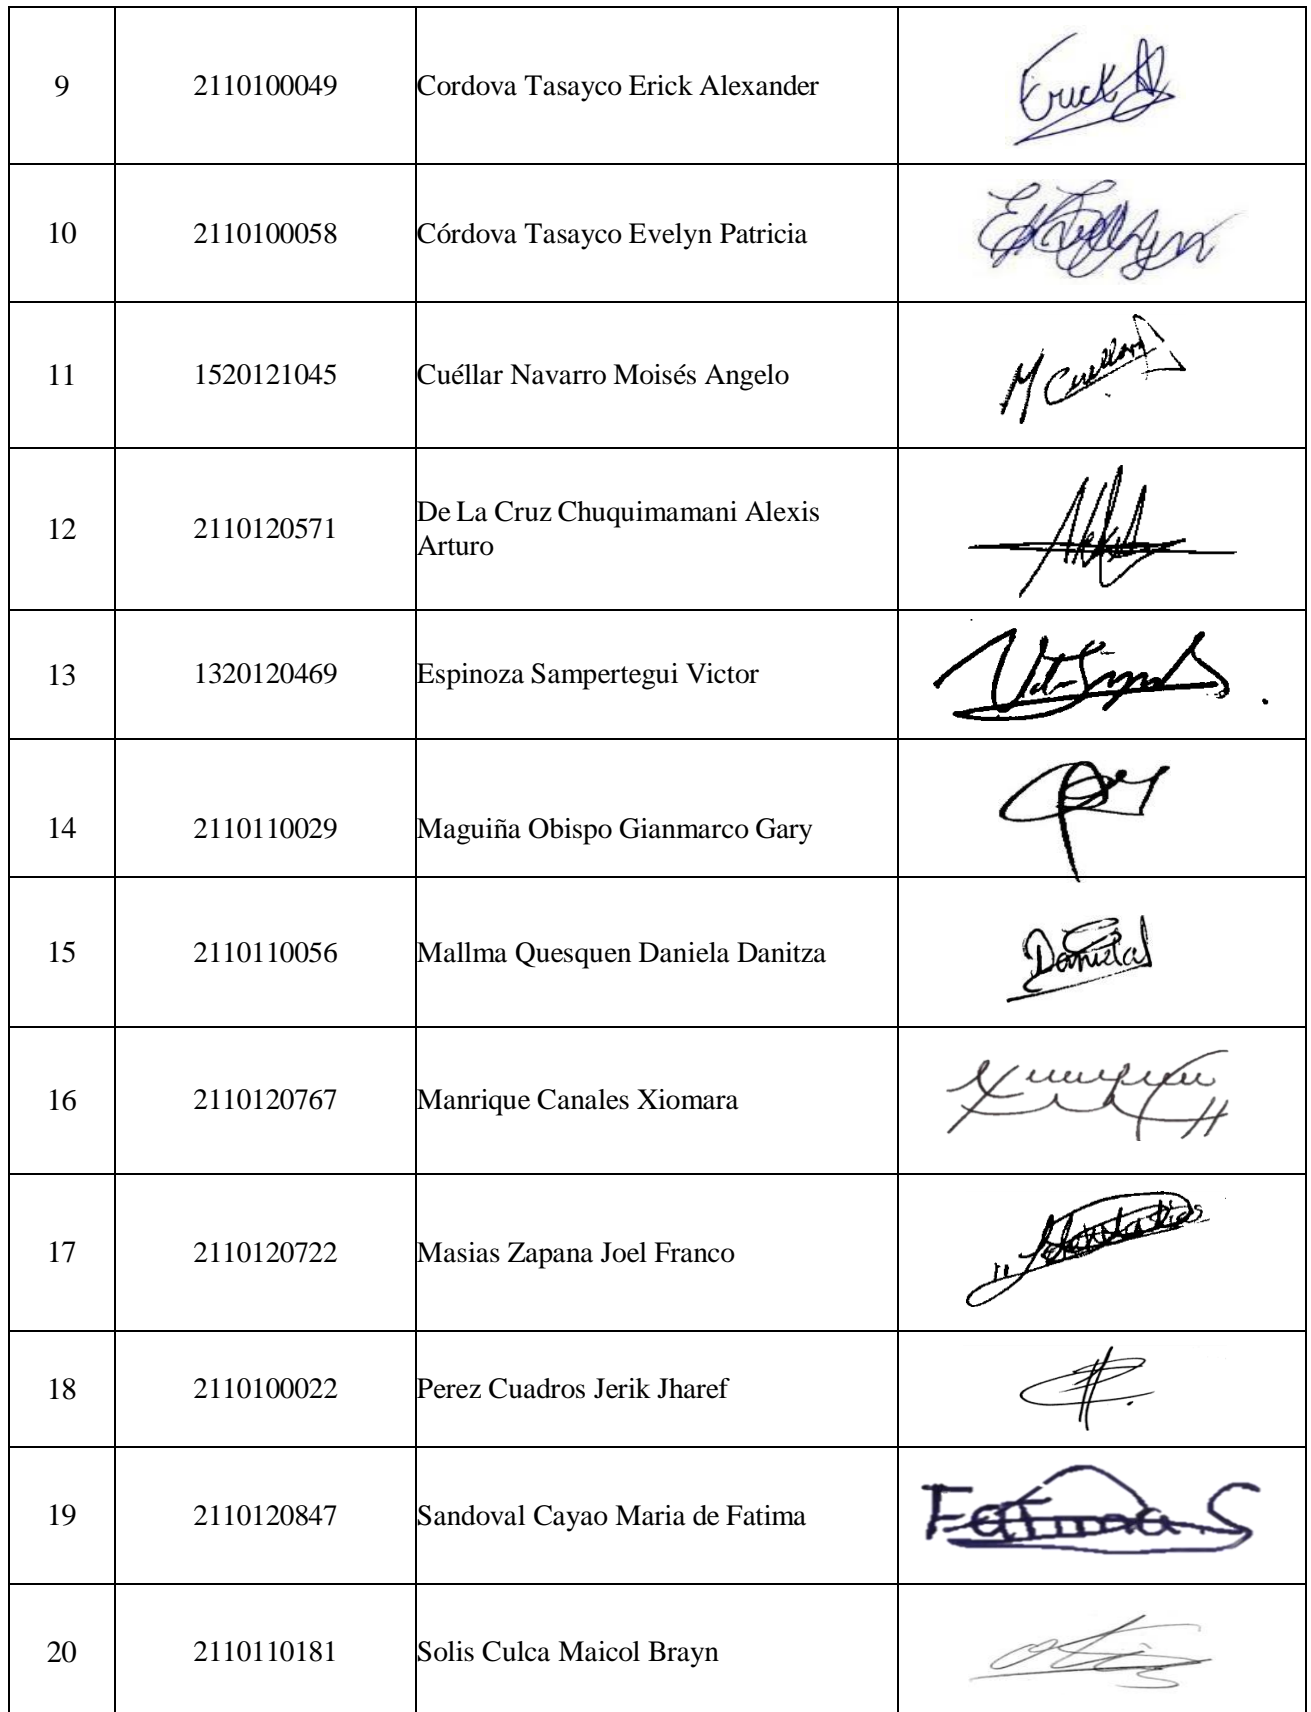 9 2110100049 Cordova Tasayco Erick Alexander Erick A
10 2110100058 Córdova Tasayco Evelyn Patricia
11 1520121045 Cuéllar Navarro Moisés Angelo M Cuellar
12 2110120571 De La Cruz Chuquimamani Alexis
Arturo
13 1320120469 Espinoza Sampertegui Victor
14 2110110029 Maguiña Obispo Gianmarco Gary
15 2110110056 Mallma Quesquen Daniela Danitza Daniela
16 2110120767 Manrique Canales Xiomara
17 2110120722 Masias Zapana Joel Franco
18 2110100022 Perez Cuadros Jerik Jharef
19 2110120847 Sandoval Cayao Maria de Fatima Fatima S
20 2110110181 Solis Culca Maicol Brayn